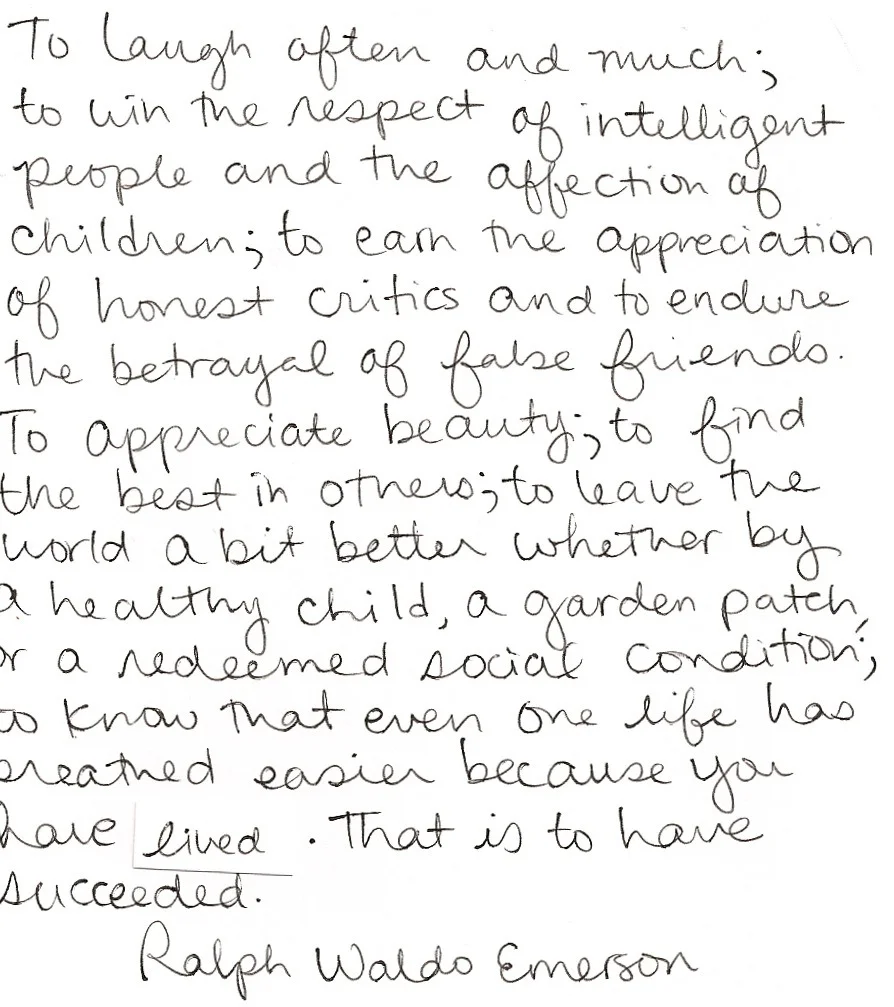 To laugh often and much;
to win the respect of intelligent
people and the affection of
children; to earn the appreciation
of honest critics and to endure
the betrayal of false friends.
To appreciate beauty; to find
the best in others; to leave the
world a bit better whether by
a healthy child, a garden patch,
or a redeemed social condition;
to know that even one life has
breathed easier because you
have lived. That is to have
succeeded.
Ralph Waldo Emerson